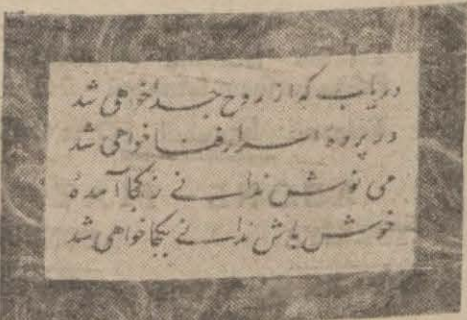 دریاب که از روح جدا خواهی شد
در پردهٔ اسرار فنا خواهی شد
می نوش ندانی ز کجا آمدهٔ
خوش باش ندانی بکجا خواهی شد